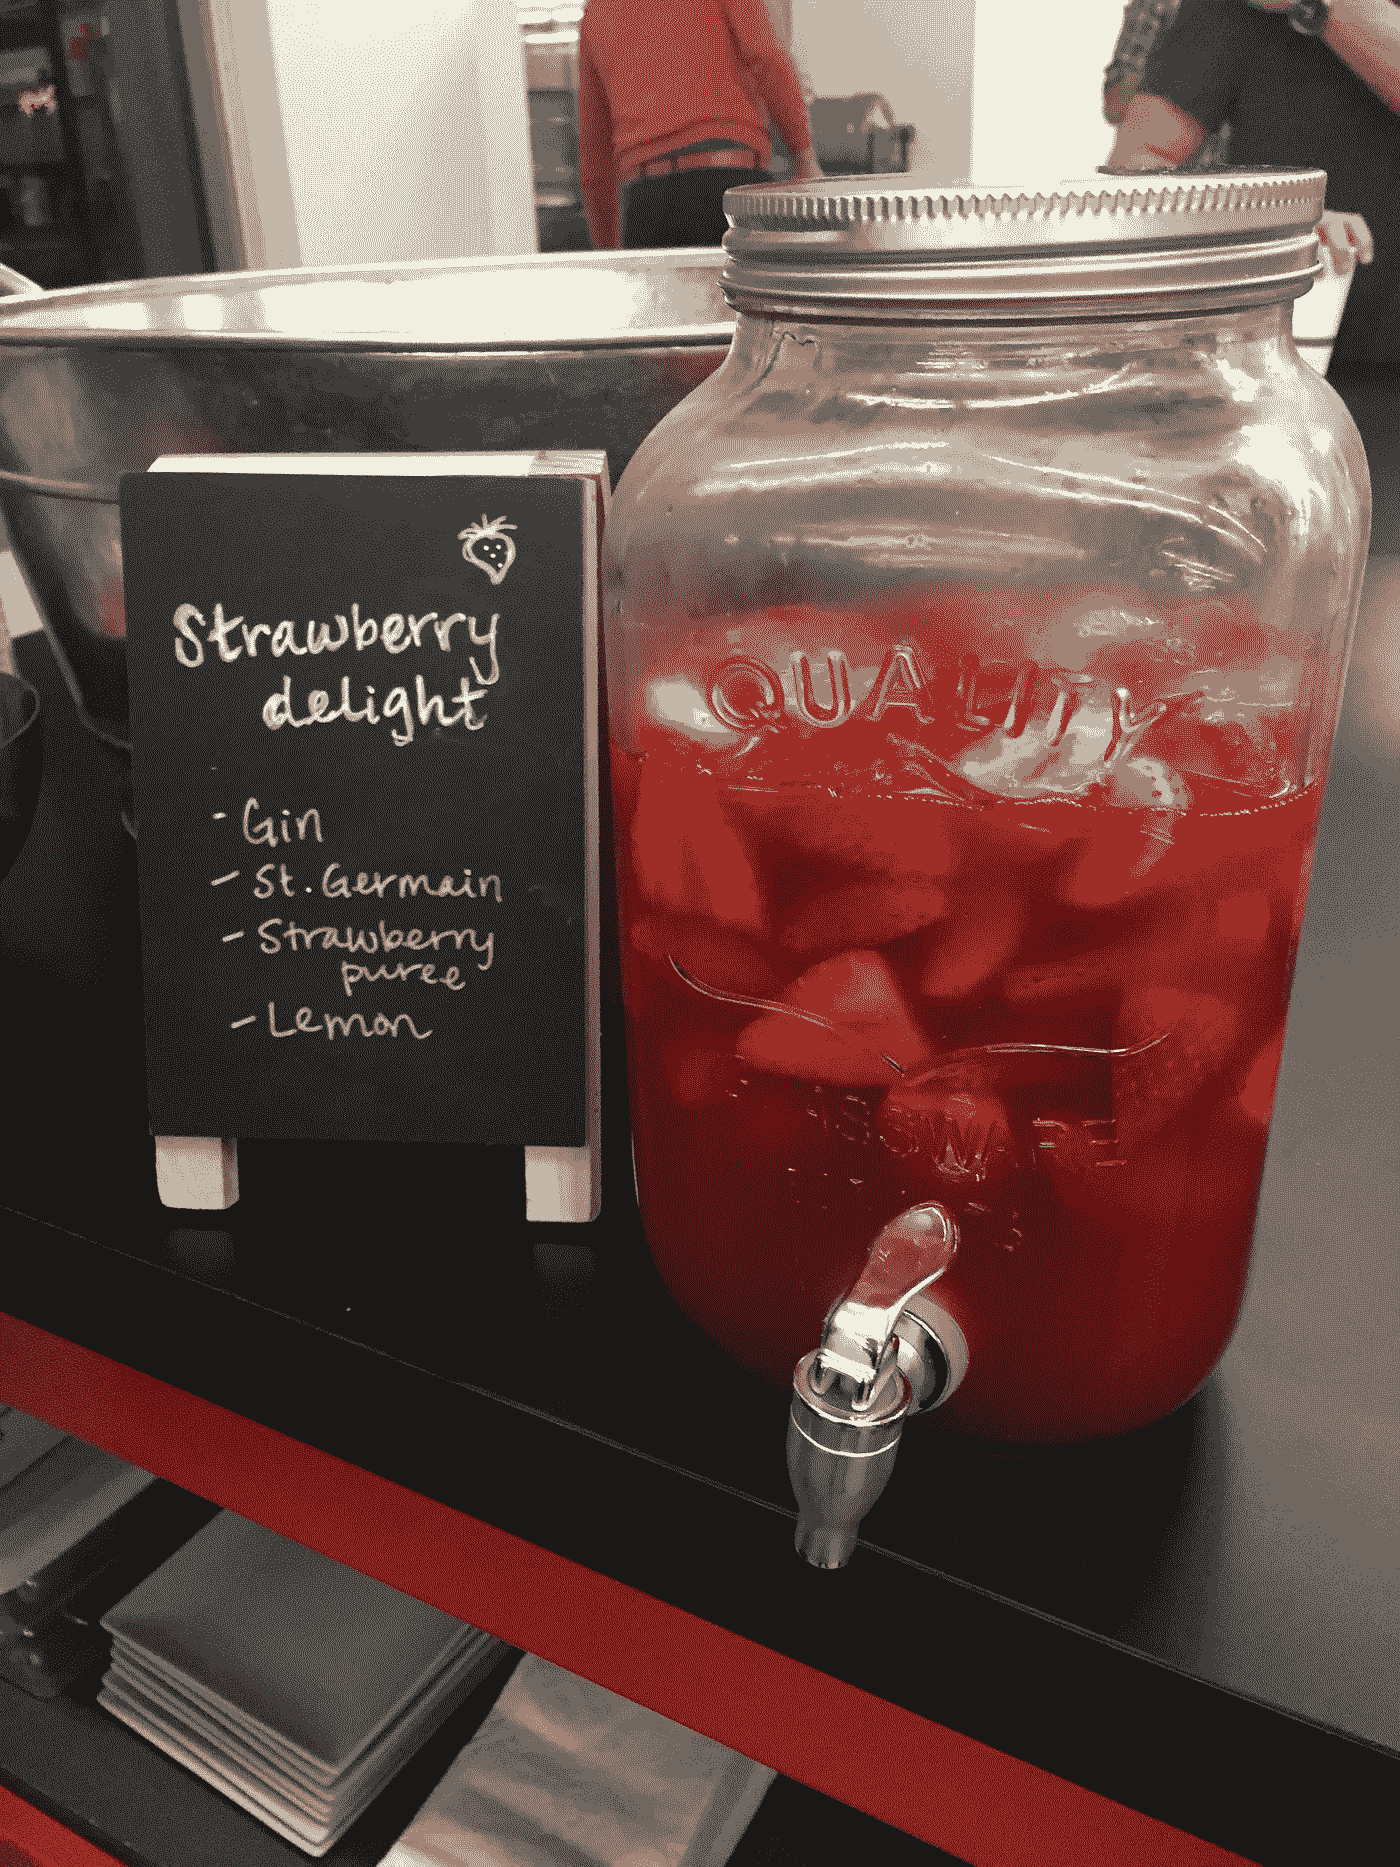 Strawberry
delight
- Gin
- St. Germain
- Strawberry
puree
- Lemon
QUALITY